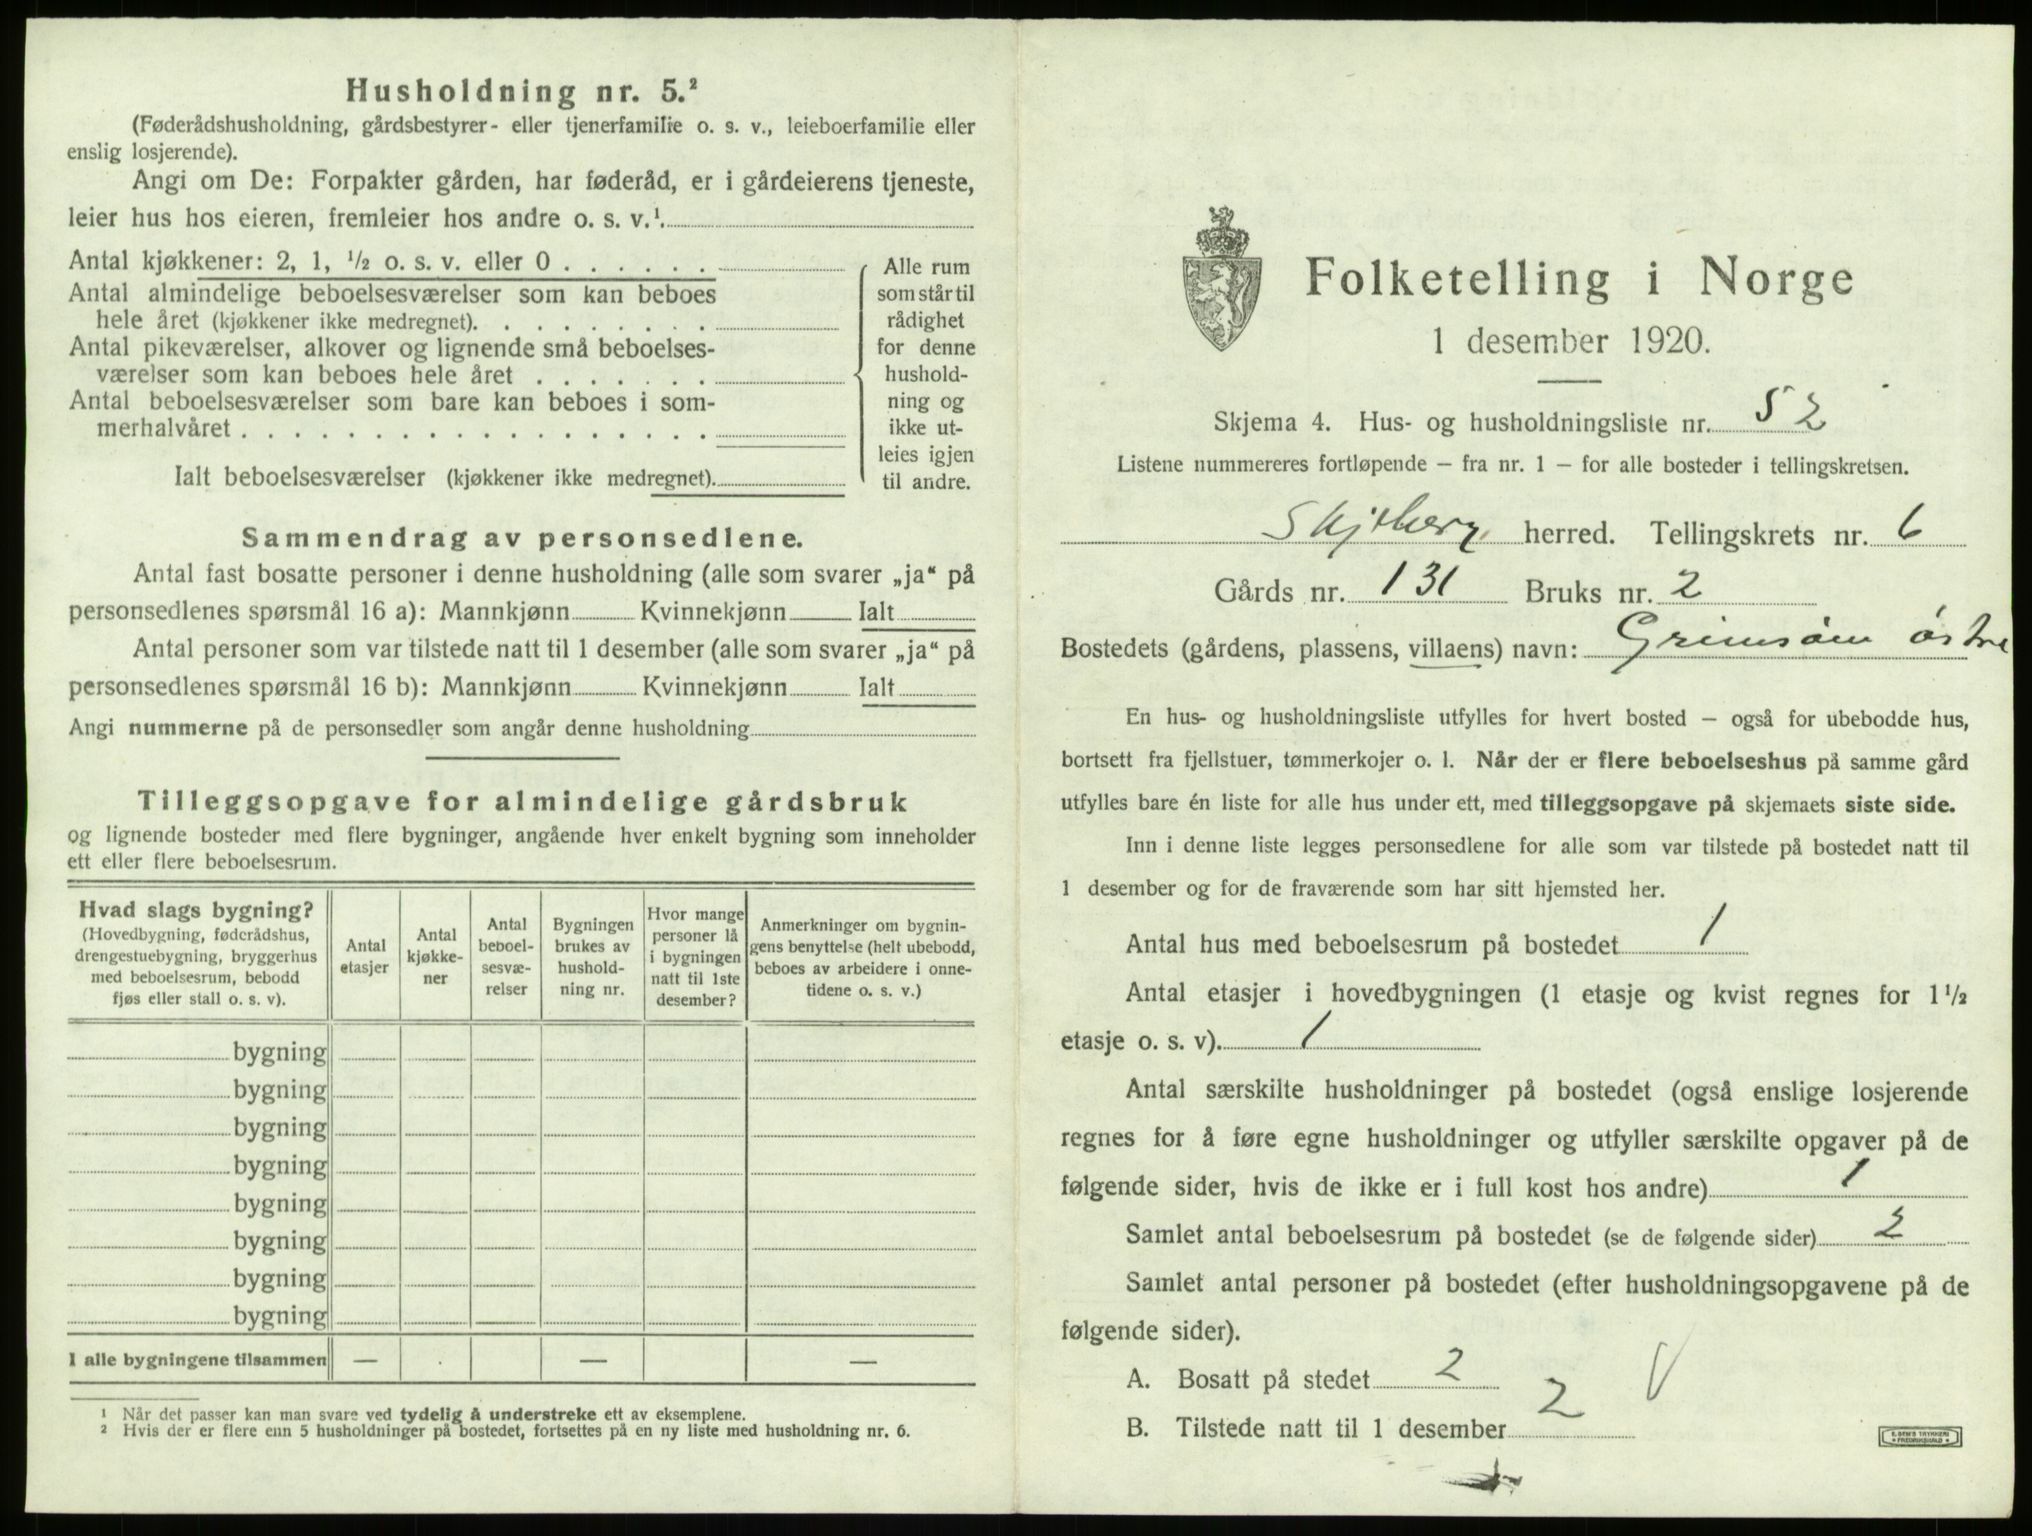 Husholdning nr. 5.²
(Føderådshusholdning, gårdsbestyrer- eller tjenerfamilie o. s. v., leieboerfamilie eller
enslig losjerende).
Angi om De: Forpakter gården, har føderåd, er i gårdeierens tjeneste,
leier hus hos eieren, fremleier hos andre o. s. v.¹.
Antal kjøkkener: 2, 1, ¹/₂ o. s. v. eller 0 . . . . . .
Antal almindelige beboelsesværelser som kan beboes
hele året (kjøkkener ikke medregnet). . . . . . . . .
Antal pikeværelser, alkover og lignende små beboelses-
værelser som kan beboes hele året . . . . . . .
Antal beboelsesværelser som bare kan beboes i som-
merhalvåret . . . . . . . . . . . . . . . . . .
Ialt beboelsesværelser (kjøkkener ikke medregnet).
Alle rum
som står til
rådighet
for denne
hushold-
ning og
ikke ut-
leies igjen
til andre.
Sammendrag av personsedlene.
Antal fast bosatte personer i denne husholdning (alle som svarer „ja“ på
personsedlenes spørsmål 16 a): Mannkjønn Kvinnekjønn Ialt
Antal personer som var tilstede natt til 1 desember (alle som svarer „ja“ på
personsedlenes spørsmål 16 b): Mannkjønn Kvinnekjønn Ialt
Angi nummerne på de personsedler som angår denne husholdning
Tilleggsopgave for almindelige gårdsbruk
og lignende bosteder med flere bygninger, angående hver enkelt bygning som inneholder
ett eller flere beboelsesrum.
Hvad slags bygning?
(Hovedbygning, føderådshus,
drengestuebygning, bryggerhus
med beboelsesrum, bebodd
fjøs eller stall o. s. v).
Antal
etasjer
Antal
kjøkke-
ner
Antal
beboel-
sesvæ-
relser
Bygningen
brukes av
hushold-
ning nr.
Hvor mange
personer lå
i bygningen
natt til 1ste
desember?
Anmerkninger om bygnin-
gens benyttelse (helt ubebodd,
beboes av arbeidere i onne-
tidene o. s. v.)
bygning
bygning
bygning
bygning
bygning
bygning
bygning
bygning
I alle bygningene tilsammen — . — —
¹ Når det passer kan man svare ved tydelig å understreke ett av eksemplene.
² Hvis der er flere enn 5 husholdninger på bostedet, fortsettes på en ny liste med husholdning nr. 6.
Folketelling i Norge
1 desember 1920.
Skjema 4. Hus- og husholdningsliste nr. 52
Listene nummereres fortløpende — fra nr. 1 — for alle bosteder i tellingskretsen.
Skjeberg. herred. Tellingskrets nr. 6
Gårds nr. 131 Bruks nr. 2
Bostedets (gårdens, plassens, villaens) navn: Grimsøm østre
En hus- og husholdningsliste utfylles for hvert bosted — også for ubebodde hus,
bortsett fra fjellstuer, tømmerkojer o. l. Når der er flere beboelseshus på samme gård
utfylles bare én liste for alle hus under ett, med tilleggsopgave på skjemaets siste side.
Inn i denne liste legges personsedlene for alle som var tilstede på bostedet natt til
1 desember og for de fraværende som har sitt hjemsted her.
Antal hus med beboelsesrum på bostedet 1
Antal etasjer i hovedbygningen (1 etasje og kvist regnes for 1¹/₂
etasje o. s. v). 1
Antal særskilte husholdninger på bostedet (også enslige losjerende
regnes for å føre egne husholdninger og utfyller særskilte opgaver på de
følgende sider, hvis de ikke er i full kost hos andre) 1
Samlet antal beboelsesrum på bostedet (se de følgende sider) 2
Samlet antal personer på bostedet (efter husholdningsopgavene på de
følgende sider).
A. Bosatt på stedet 2
B. Tilstede natt til 1 desember 2
V
E. SEM'S TRYKKERI
FREDRIKSHALD